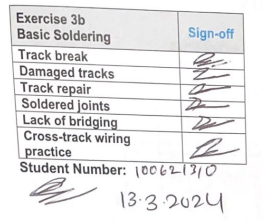 Exercise 3b
Basic Soldering
Sign-off
Track break
Damaged tracks
Track repair
Soldered joints
Lack of bridging
Cross-track wiring
practice
Student Number: 100621310
13.3.2024